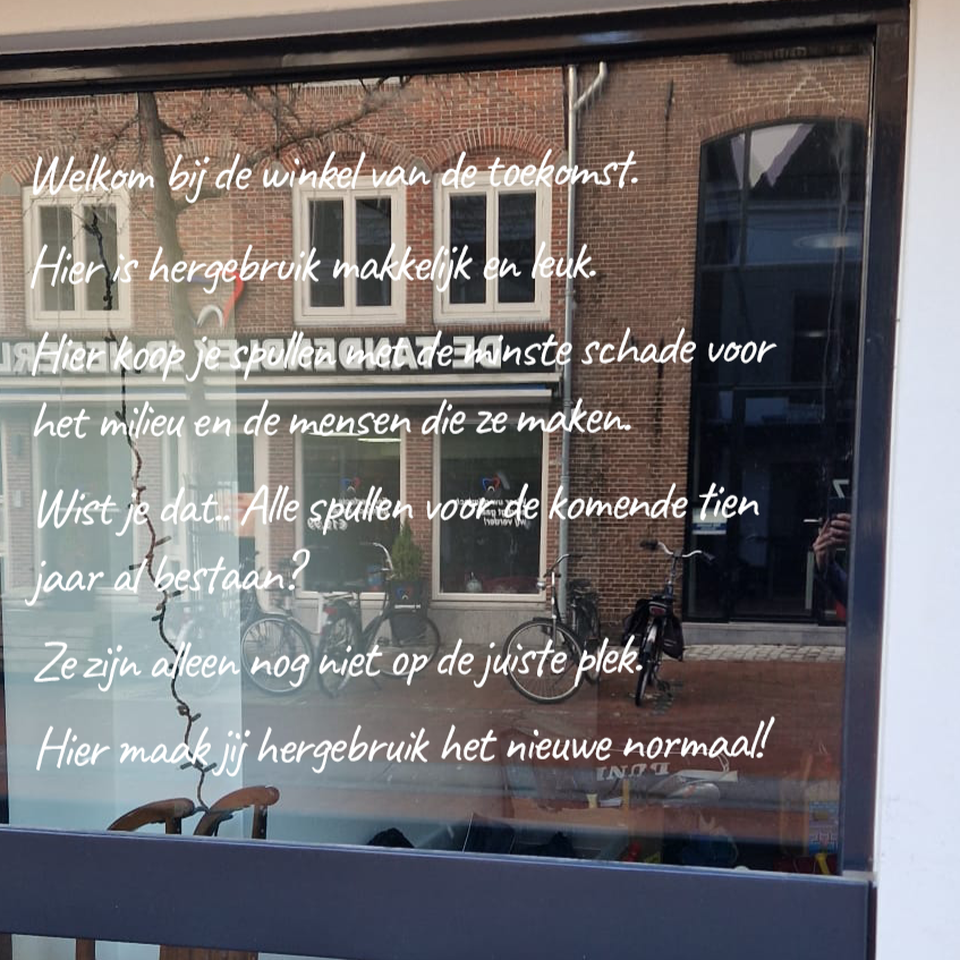 Welkom bij de winkel van de toekomst.
Hier is hergebruik makkelijk en leuk.
Hier koop je spullen met de minste schade voor
het milieu en de mensen die ze maken.
Wist je dat.. Alle spullen voor de komende tien
jaar al bestaan?
Ze zijn alleen nog niet op de juiste plek.
Hier maak jij hergebruik het nieuwe normaal!